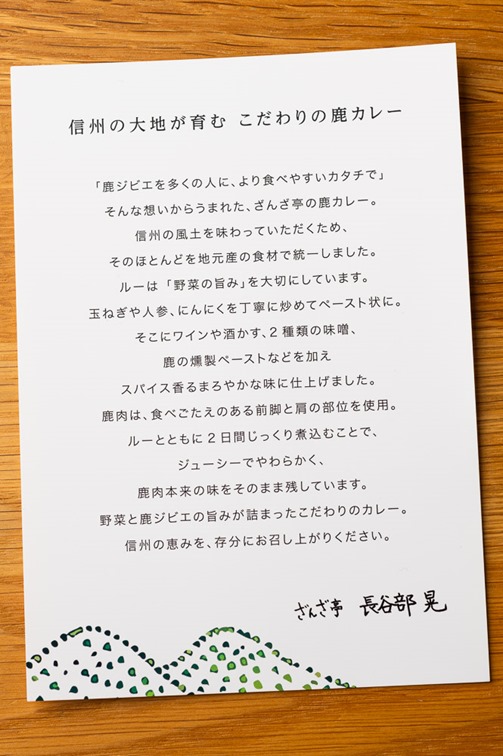 信州の大地が育む こだわりの鹿カレー
「鹿ジビエを多くの人に、より食べやすいカタチで」
そんな想いからうまれた、ざんざ亭の鹿カレー。
信州の風土を味わっていただくため、
そのほとんどを地元産の食材で統一しました。
ルーは「野菜の旨み」を大切にしています。
玉ねぎや人参、にんにくを丁寧に炒めてペースト状に。
そこにワインや酒かす、2種類の味噌、
鹿の燻製ペーストなどを加え
スパイス香るまろやかな味に仕上げました。
鹿肉は、食べごたえのある前脚と肩の部位を使用。
ルーとともに2日間じっくり煮込むことで、
ジューシーでやわらかく、
鹿肉本来の味をそのまま残しています。
野菜と鹿ジビエの旨みが詰まったこだわりのカレー。
信州の恵みを、存分にお召し上がりください。
ざんざ亭 長谷部 晃